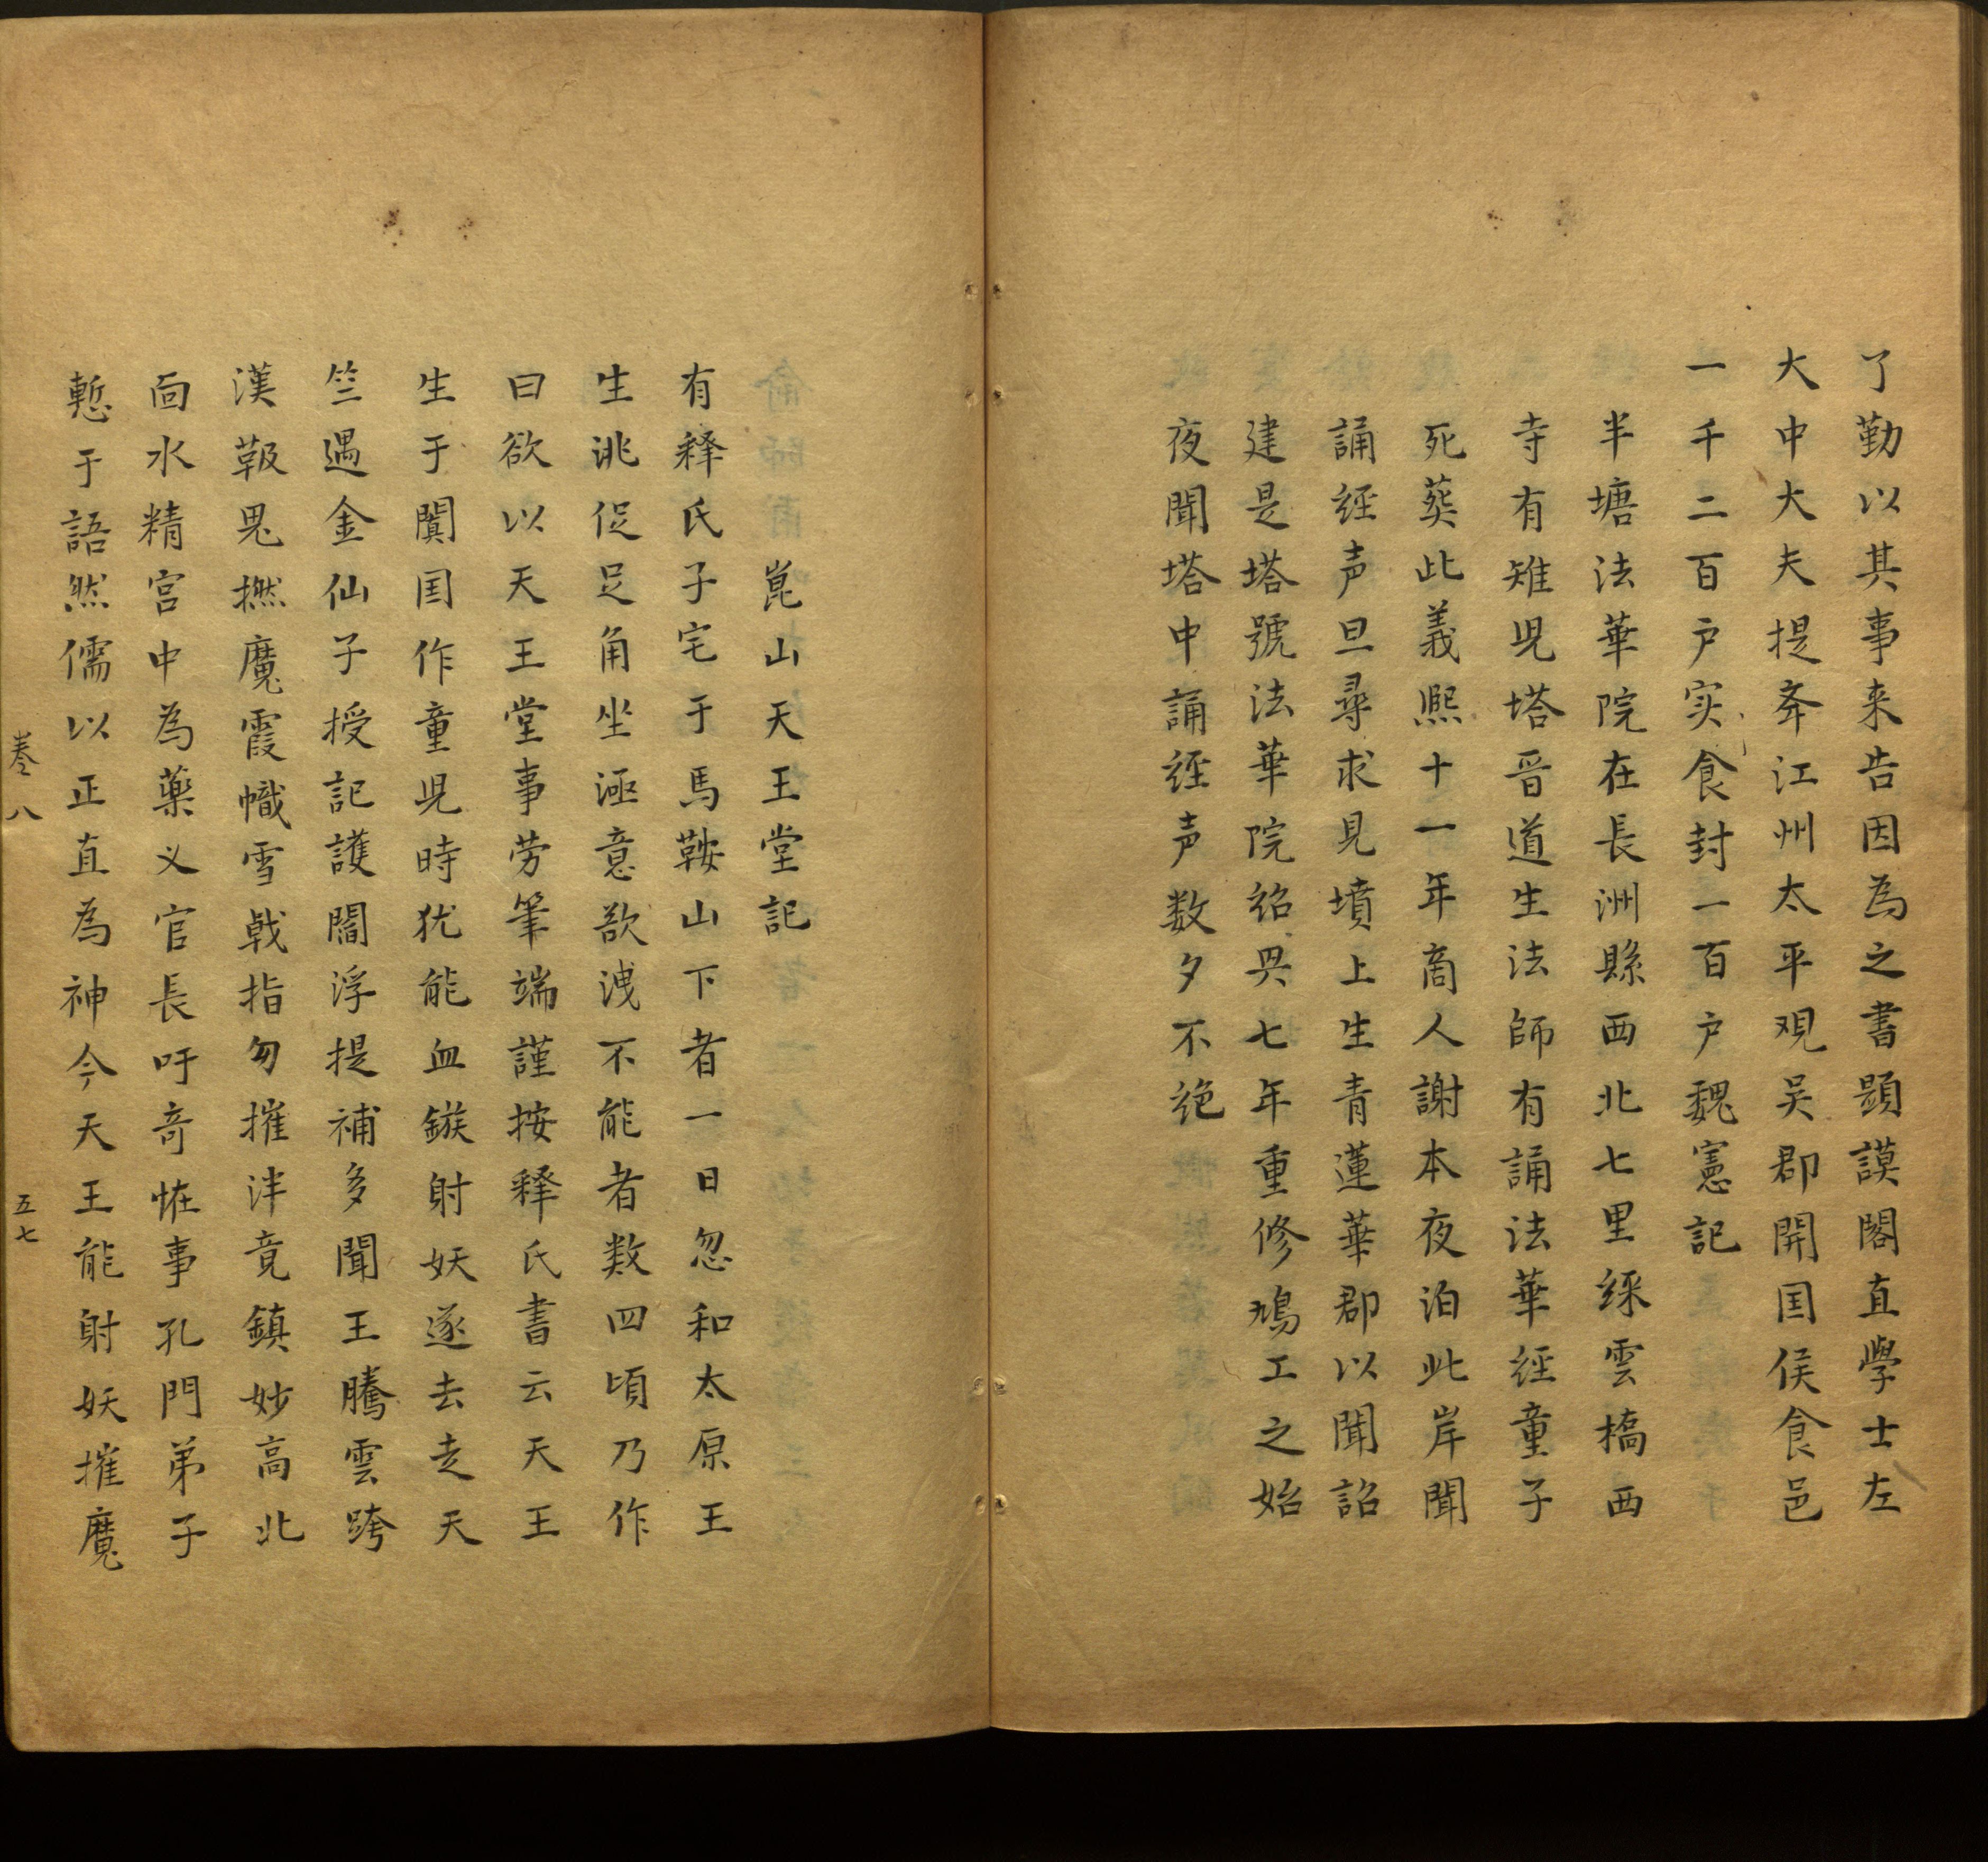 了勤以其事来告因為之書顕謨閣直學士左
大中大夫提𠦑江州太平观吴郡開囯侯食邑
一千二百户实食封一百户魏憲記
半塘法華院在長洲縣西北七里綵雲橋西
寺有雉児塔晋道生法師有誦法華経童子
死葬此義熈十一年商人謝本夜泊此岸聞
誦経声旦尋求見墳上生青蓮華郡以聞詔
建是塔號法華院紹㒷七年重修鳩工之始
夜聞塔中誦経声数夕不绝
崑山天王堂記
有释氏子宅于馬鞍山下者一日忽和太原王
生誂促足角坐極意欲洩不能者数四頃乃作
曰欲以天王堂事劳筆端謹按释氏書云天王
生于闐囯作童児時犹能血鏃射妖遂去走天
竺遇金仙子授記護閻浮提補多聞王騰雲跨
漢靸鬼撚魔霞幟雪戟指勿摧泮竟鎮妙高北
面水精宫中為藥义官長吁竒恠事孔門弟子
慙于語然儒以正直為神今天王能射妖摧魔
巻八
五七